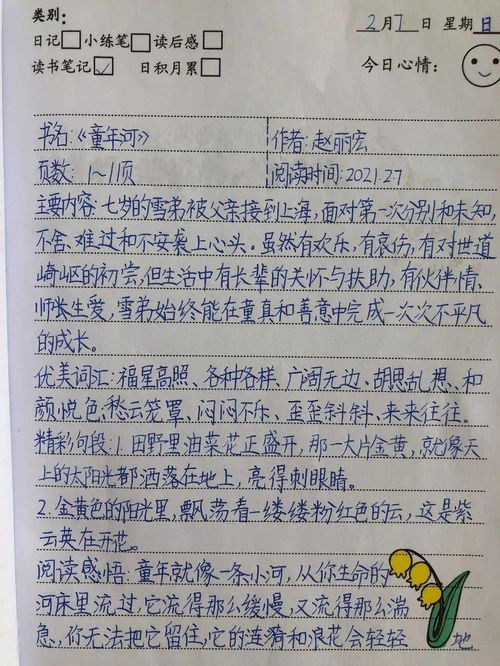 类别：
2月7日 星期日
日记□ 小练笔□ 读后感□
读书笔记☑ 日积月累□ 今日心情：
书名:《童年河》 作者:赵丽宏
页数: 1～11页 阅读时间:2021.2.7
主要内容:七岁的雪弟被父亲接到上海,面对第一次分别和未知,
不舍、难过和不安袭上心头。虽然有欢乐,有哀伤,有对世道
崎岖的初尝,但生活中有长辈的关怀与扶助,有伙伴情、
师长生爱,雪弟始终能在童真和善意中完成一次次不平凡
的成长。
优美词汇:福星高照、各种各样、广阔无边、胡思乱想、和
颜悦色、愁云笼罩、闷闷不乐、歪歪斜斜、来来往往。
精彩句段:1.田野里油菜花正盛开,那一大片金黄,就像天
上的太阳光都洒落在地上,亮得刺眼睛。
2.金黄色的阳光里,飘荡着一缕缕粉红色的云,这是紫
云英在开花。
阅读感悟:童年就像一条小河,从你生命的
河床里流过,它流得那么缓慢,又流得那么湍
急,你无法把它留住,它的涟漪和浪花会轻轻地